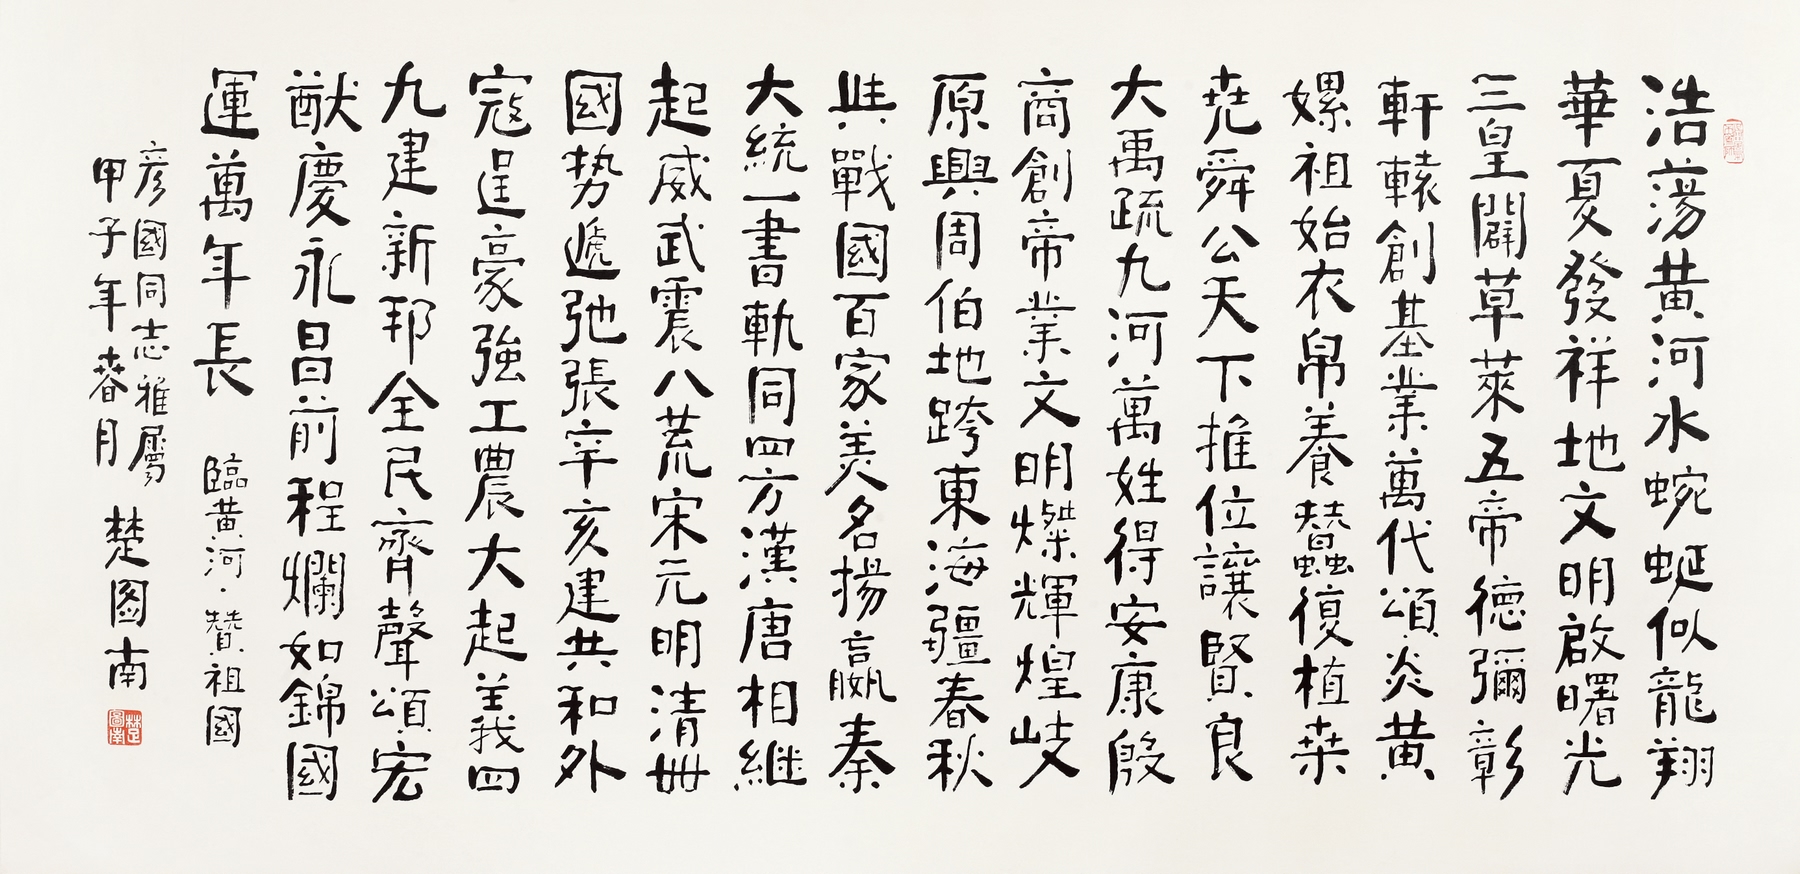 浩蕩黃河水蜿蜒似龍翔
華夏發祥地文明啟曙光
三皇闢草萊五帝德彌彰
軒轅創基業萬代頌炎黃
嫘祖始衣帛養蠶復植桑
堯舜公天下推位讓賢良
大禹疏九河萬姓得安康殷
商創帝業文明燦輝煌岐
原興周伯地跨東海疆春秋
與戰國百家美名揚嬴秦
大統一書軌同四方漢唐相繼
起威武震八荒宋元明清世
國势遞弛張辛亥建共和外
寇逞豪強工農大起義四
九建新邦全民齊聲頌宏
猷慶永昌前程爛如錦國
運萬年長 臨黃河·贊祖國
彥國同志雅屬
甲子年春月 楚圖南
楚圖南